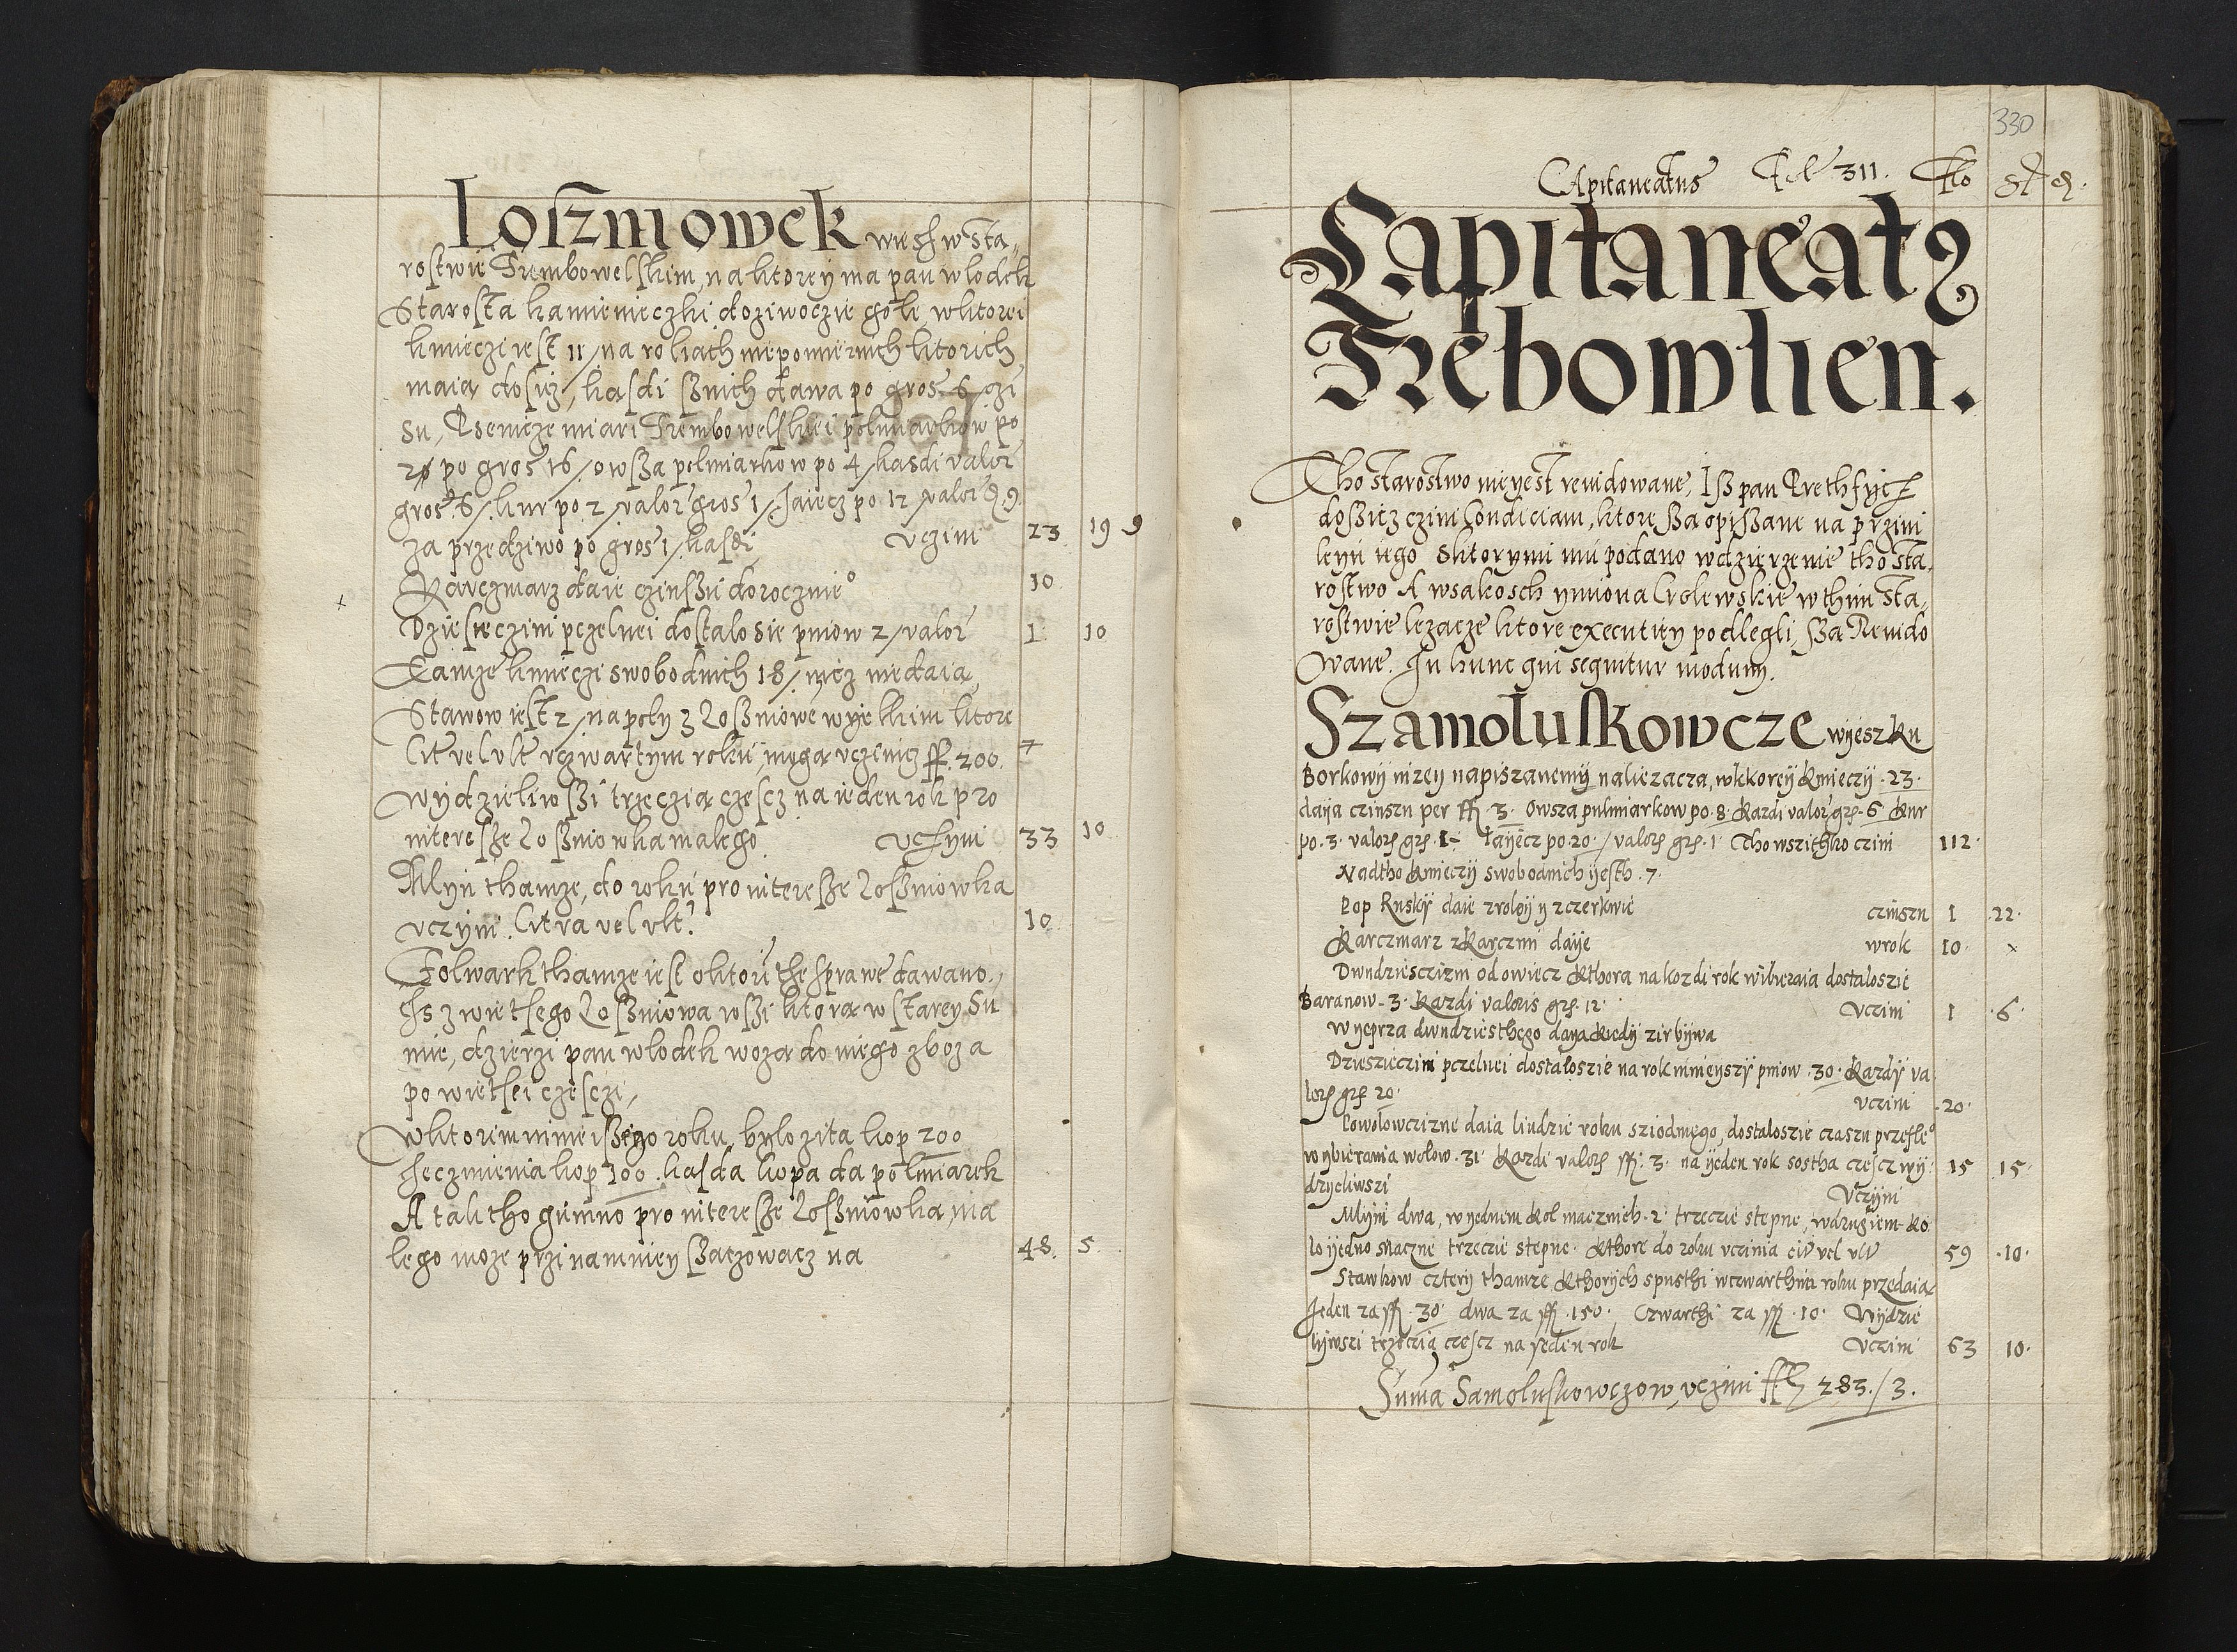 Loszniowek wiesh w sta„
rostwie Trembowelskim, na ktorey ma pan wlodek
Starosta kamienieczki doziwoczie gole, w ktorei
kmieczi iest 11 / na roliach niepomiernich ktorich
maią dosicz, kasdi sznich dawa po gros 6 / czi
su, Psenicze miari Trembowelskiei polmiarkow po
2 po gros 16 / owsza polmiarkow po 4 / kasdi valor
gros 6 / kur po 2 / valor gros 1 / Jaiecz po 12 / valor ꝺ 9
za przedziwo po gros 1 / kasdi uczini 23 19 9
Karczmarz daie czinszu dorocznie 10
Dziesięczini pczelnei dostalo sie pniow 2 / valor 1 10
Tamze kmieczi swobodnich 18 / nicz niedaią
Stawow iest 2 / na poly z Loszniowe wyelkim ktore
Cit vel ult uczwartym roku, mogą uczinicz ff. 200.
wydzieliwszi trzeczią czescz na ieden rok pro
interesse Loszniowka malego uczyni 33 10
Mlyn thamze, do roku pro interesse Loszniowka
uczyni. Citra vel ult. 10
Folwark thamze iest o ktoru the sprawe dawano,
Js z wietsego Loszniowa wszi ktorą w starey Su
mie, dzierzi pan wlodek wozą do niego zboza
po wietsei czesczi,
w ktorem nimieiszego roku, bylo zita kop 200
Jeczmienia kop 100. kasda kopa da polmiarek
A tak tho gumno pro interesse Loszniowka ma
lego moze przinamniey szaczowacz na 48. 5
330
Capitaneatus 311. Flo
Capitaneatꝰ
Trebowlien.
Tho starostwo nieyest revidowane, Isz pan Pretfycz
dosicz czini Condiciam, ktore sza opiszane na przivi
leyu iego Sktorymi mu podano w dzierzenie tho sta„
rostwo A wsakosch ymiona Crolewskie w thim sta„
rostwie lezacze ktore executiey podlegli, sza Revido
wane. In hunc qui sequitur modum.
Szamoluskowcze wyesz ku
Borkowy nizey napiszanemu naliezacza, w kkorey kmieczy .23.
daija czinszu per ff. 3. Owsza pulmiarkow po .8. kazdi valor grs. 6 Kur
po .3. valors grs 1 Iayecz po .20. / valors grs .1. Tho wszithko czini 112.
Nadtho kmieczy swobodnich yesth .7.
Pop Rusky daie z roley y z czerkwie czinszu 1 .22.
Karczmarz z karczmi daye w rok 10. ×
Dwudziesczizni od owiecz kthora na kozdi rok wibieraia dostaloszie
Baranow .3. Kazdi valoris grs .12. Uczini 1 .6.
Wyeprza dwudziesthego daya kiedy zirbywa
Dzieszieczini pczelnei dostaloszie na rok ninieyszy pniow .30. Kazdy va
lors grs 20. Uczini .20.
Powolowczizne daia liudzie roku sziodmego, dostaloszie czaszu przeszle°
wybierania wolow .31 Kazdi valors ff. 3. na yeden rok sostha czescz wy 15 15.
dzyeliwszi Uczyni
Mlyni dwa, w yednem kol macznich .2. trzeczie stepne, w drugiem ko
lo yedno maczne trzeczie stepne. kthore do roku uczinia cit vel ult 59 .10.
Stawkow cztery thamze kthorych spusthi w czwarthim roku przedaia
Jeden za ff. 30 dwa za ff. 150. Czwarthi za ff. 10. Wydzie
liywszi trzeczia czescz na yeden rok Uczini 63 10.
Suma Samoluskowczow uczini ff 283. / 3.